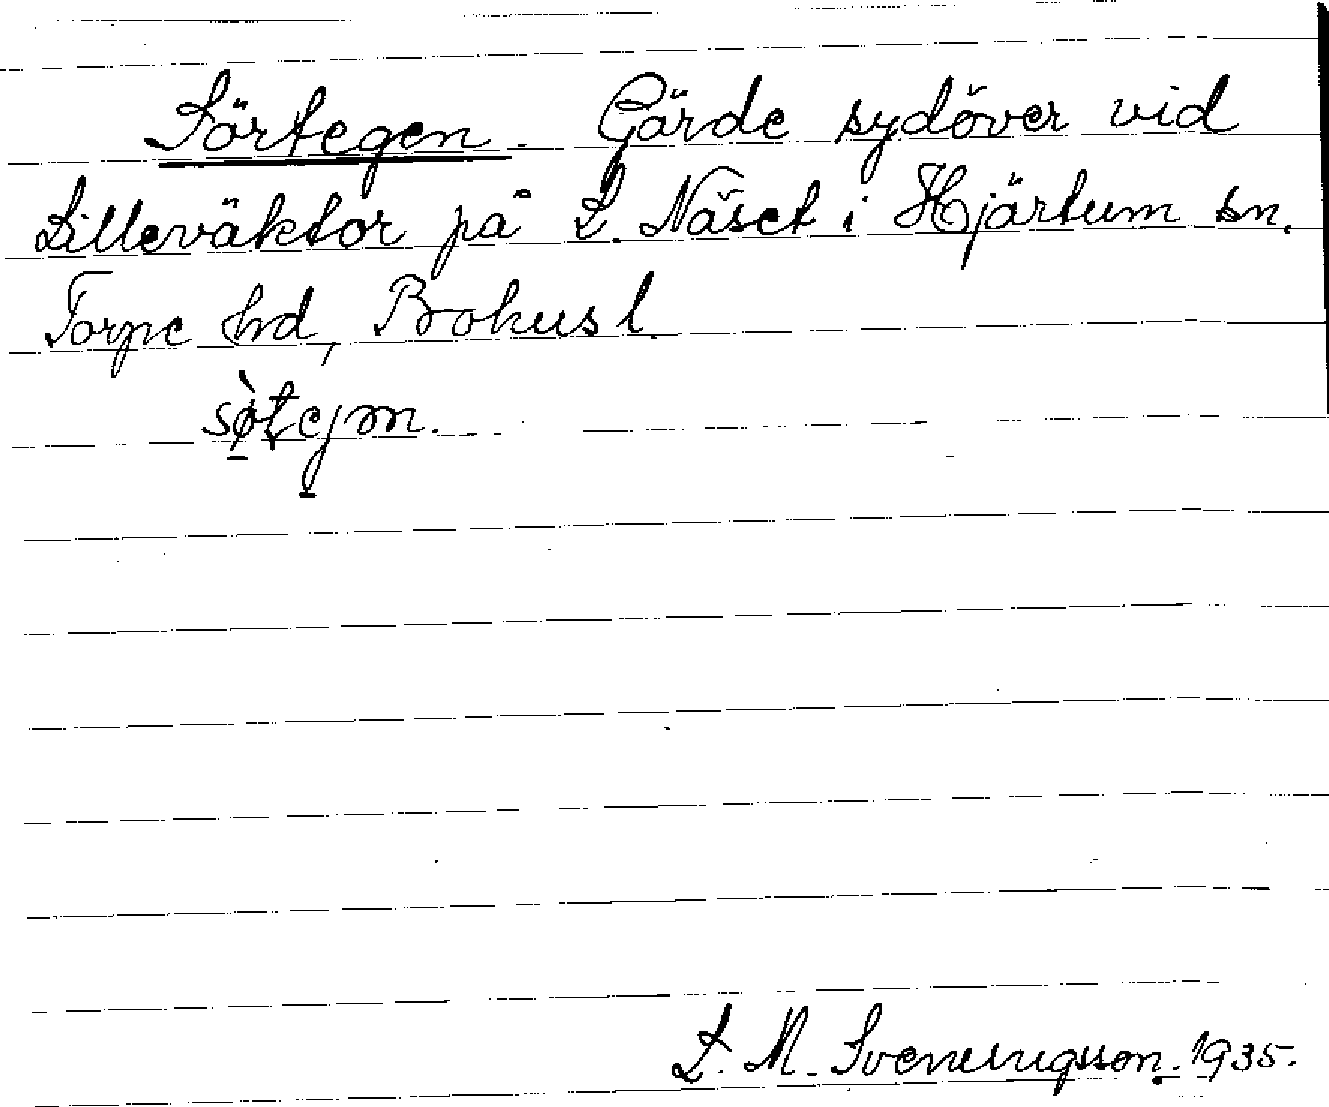 Sörtegen. Gärde sydöver vid
Lilleväktor på L. Näset i Hjärtum sn.
Torpe hrd, Bohusl.
sø̀tejm.
L. M. Svenungsson. 1935.